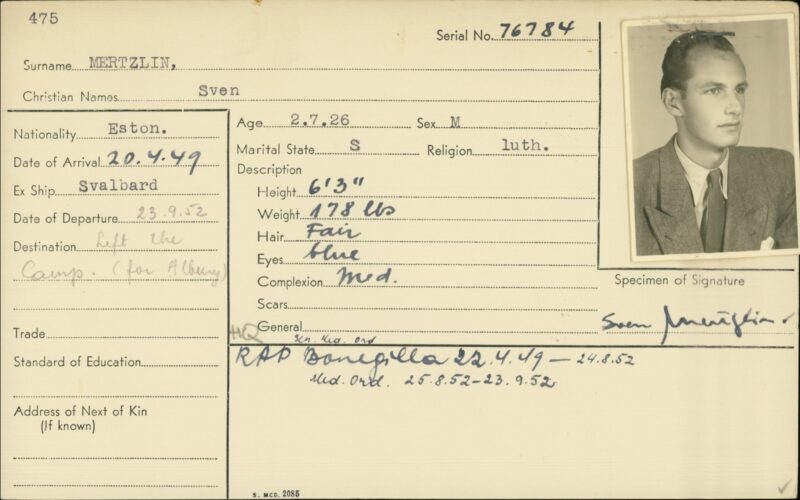 475
Serial No. 76784
Surname MERTZLIN,
Christian Names Sven
Nationality Eston.
Date of Arrival 20.4.49
Ex Ship Svalbard
Date of Departure 23.9.52
Destination Left the
Camp. (for Albury)
Trade
Standard of Education
Address of Next of Kin
(If known)
Age 2.7.26 Sex M
Marital State S Religion luth.
Description
Height 6'3"
Weight 178 lbs
Hair Fair
Eyes blue
Complexion Med.
Scars
General
HQ
Med. Ord
RAP Bonegilla 22.4.49 — 24.8.52
Med. Ord. 25.8.52 – 23.9.52
Specimen of Signature
Sven Mertzlin
S. MCD. 2085